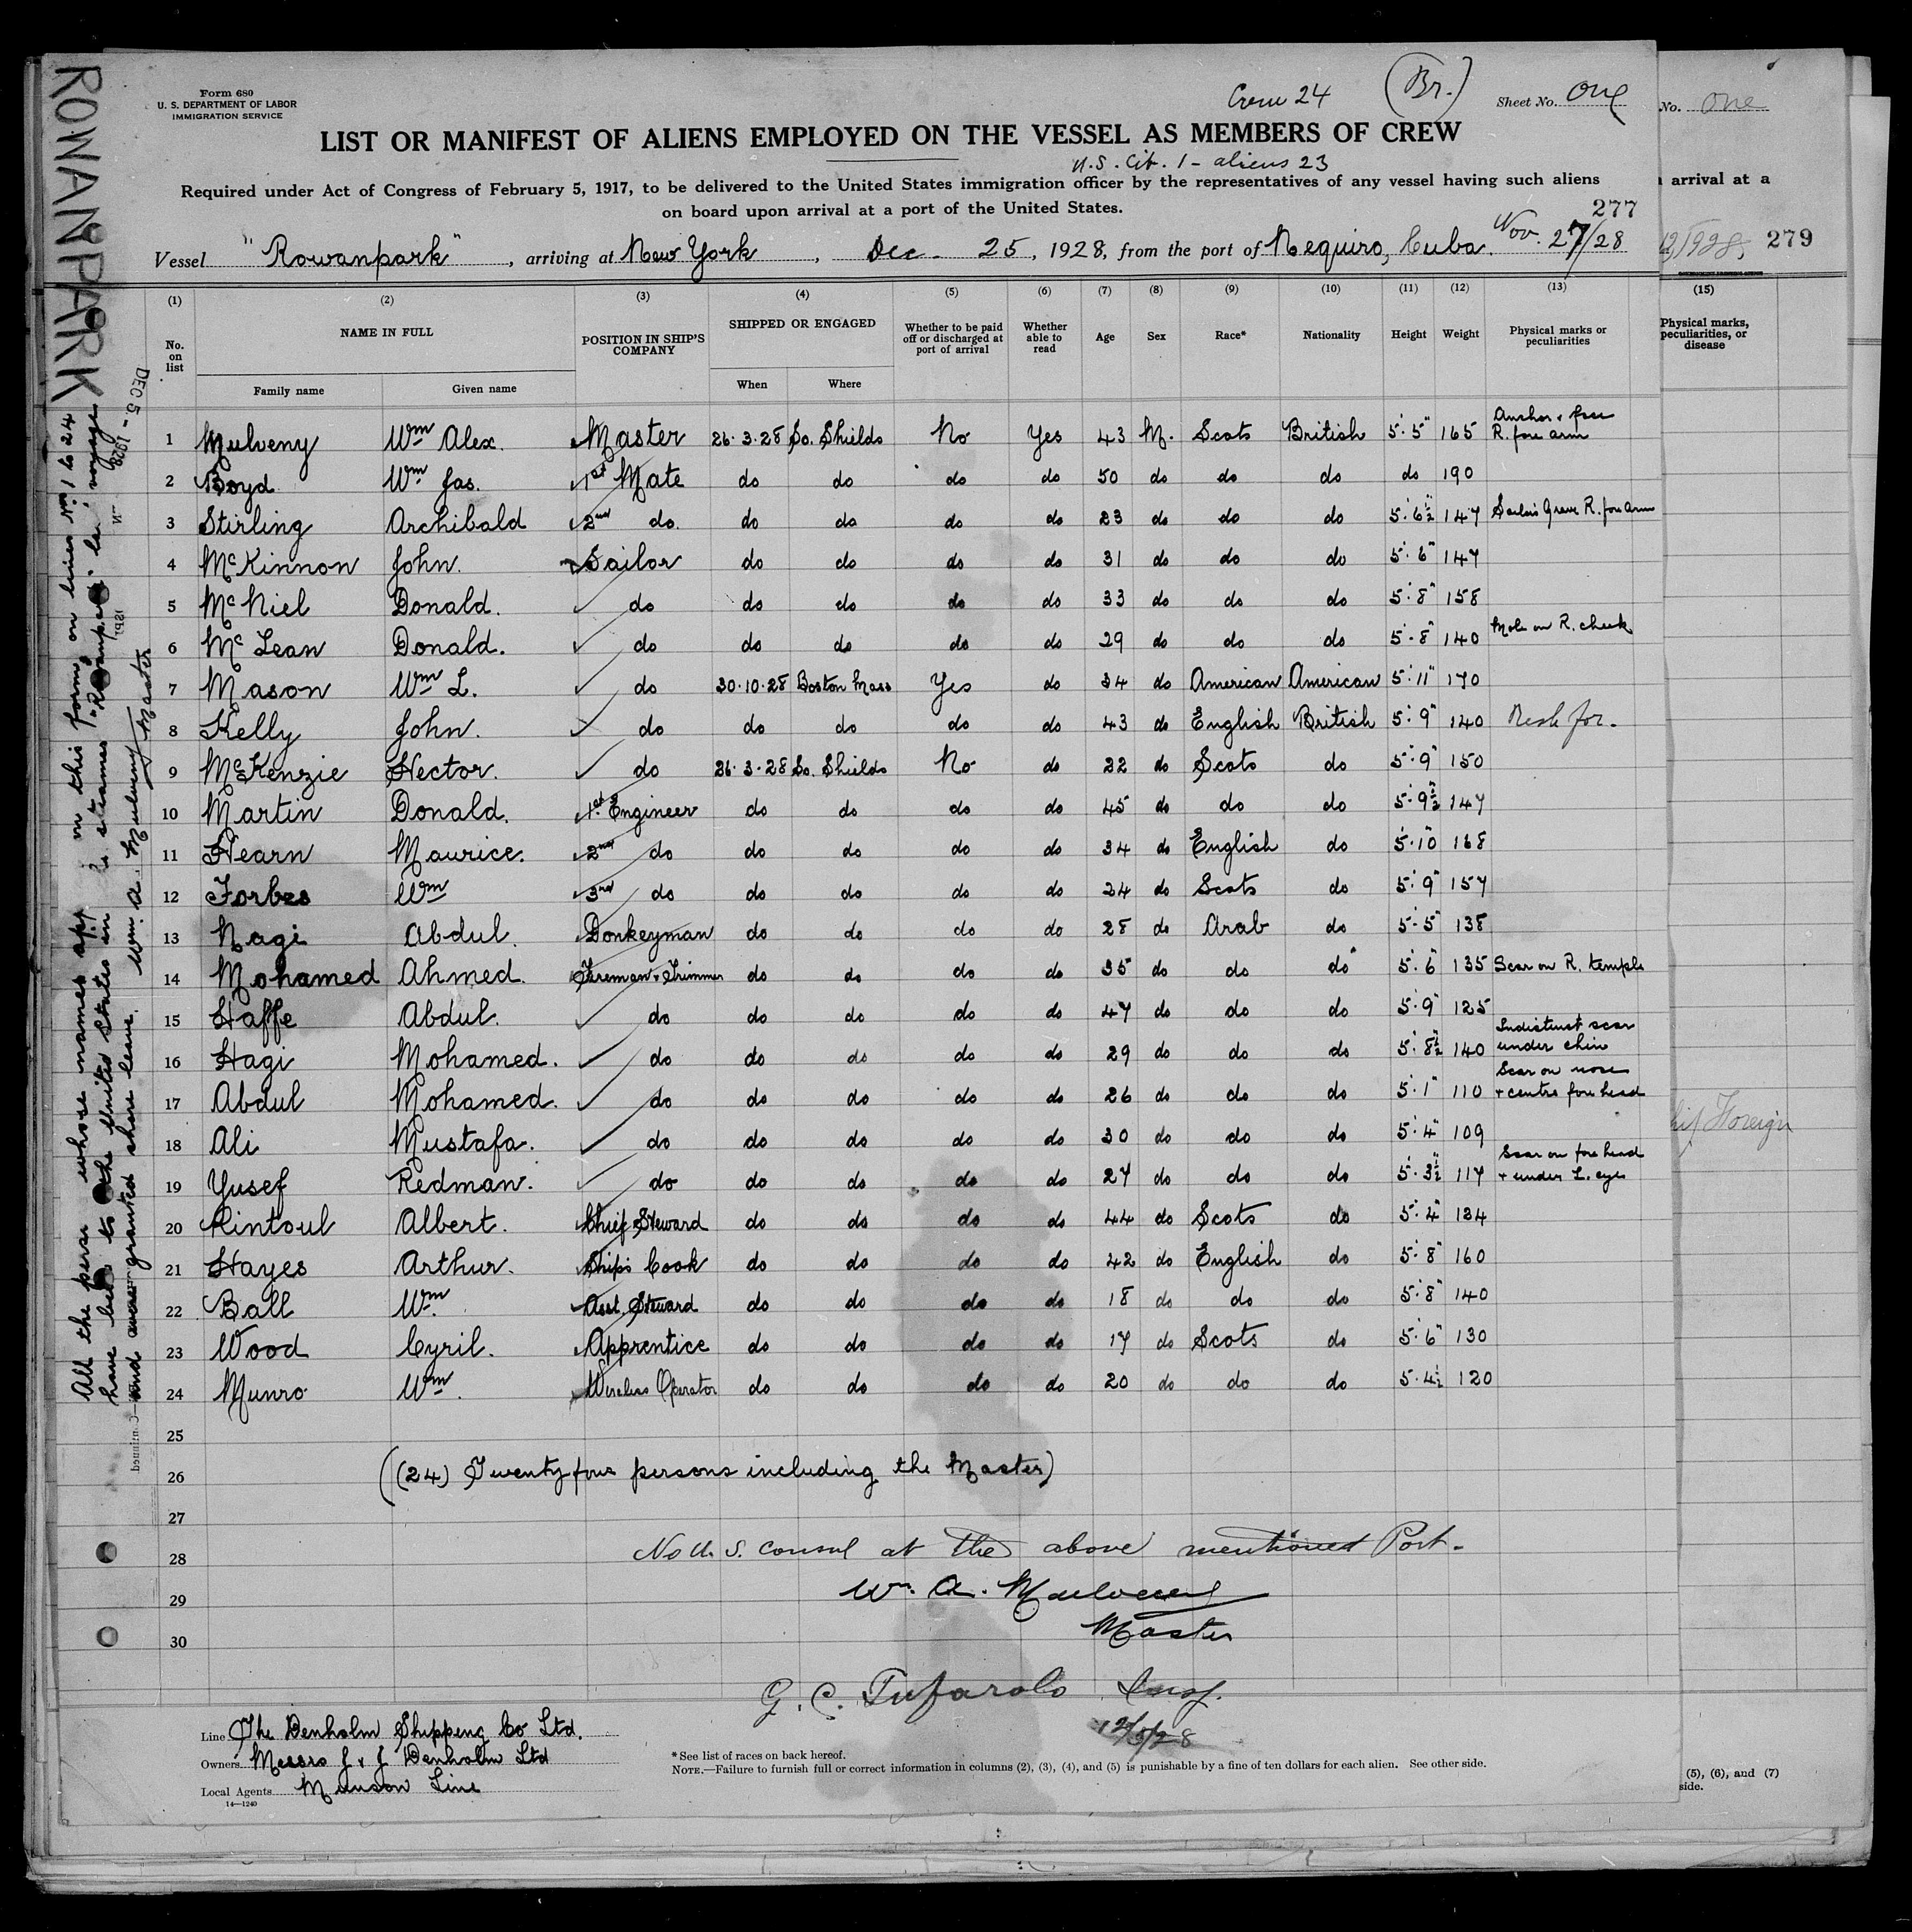 ROWANPARK
Form 680
U. S. DEPARTMENT OF LABOR
IMMIGRATION SERVICE
Crew 24 (Br.)
Sheet No. One
LIST OR MANIFEST OF ALIENS EMPLOYED ON THE VESSEL AS MEMBERS OF CREW
U.S. Cit. 1 - aliens 23
Required under Act of Congress of February 5, 1917, to be delivered to the United States immigration officer by the representatives of any vessel having such aliens
on board upon arrival at a port of the United States.
277
Vessel "Rowanpark", arriving at New York, Dec. 25, 1928, from the port of Nequiro, Cuba. Nov. 27/28
(1) (2) (3) (4) (5) (6) (7) (8) (9) (10) (11) (12) (13)
No. on list NAME IN FULL POSITION IN SHIP'S COMPANY SHIPPED OR ENGAGED Whether to be paid off or discharged at port of arrival Whether able to read Age Sex Race* Nationality Height Weight Physical marks or peculiarities
Family name Given name When Where
1 Mulveny Wm Alex. Master 26.3.28 So. Shields No Yes 43 M. Scots British 5'.5" 165 Anchor & R. fore arm
2 Boyd Wm Jas. 1st Mate do do do do 50 do do do do 190
3 Stirling Archibald 2nd do. do do do do 23 do do do 5'.6½" 147 Sailors Grave R. fore arm
4 McKinnon John. Sailor do do do do 31 do do do 5'.6" 147
5 McNiel Donald. do do do do do 33 do do do 5'.8" 158
6 McLean Donald. do do do do do 29 do do do 5'.8" 140 Mole on R. cheek
7 Mason Wm L. do 30.10.28 Boston Mass Yes do 34 do American American 5'.11" 170
8 Kelly John. do do do do do 43 do English British 5'.9" 140
9 McKenzie Hector. do 26.3.28 So. Shields No do 22 do Scots do 5'.9" 150
10 Martin Donald. 1st Engineer do do do do 45 do do do 5'.9½" 147
11 Hearn Maurice. 2nd do do do do do 34 do English do 5'.10" 168
12 Forbes Wm 3rd do do do do do 24 do Scots do 5'.9" 157
13 Nagi Abdul. Donkeyman do do do do 28 do Arab do 5'.5" 138
14 Mohamed Ahmed. Fireman & Trimmer do do do do 35 do do do 5'.6" 135 Scar on R. temple
15 Haffe Abdul. do do do do do 47 do do do 5'.9" 125
16 Hagi Mohamed. do do do do do 29 do do do 5'.8½" 140 Indistinct scar under chin
17 Abdul Mohamed. do do do do do 26 do do do 5'.1" 110 Scar on nose & centre forehead
18 Ali Mustafa. do do do do do 30 do do do 5'.4" 109
19 Yusef Redman. do do do do do 27 do do do 5'.3½" 117 Scar on forehead & under L. eye
20 Rintoul Albert. Chief Steward do do do do 44 do Scots do 5'.4" 134
21 Hayes Arthur. Ship's Cook do do do do 42 do English do 5'.8" 160
22 Ball Wm. Asst. Steward do do do do 18 do do do 5'.8" 140
23 Wood Cyril. Apprentice do do do do 17 do Scots do 5'.6" 130
24 Munro Wm. Wireless Operator do do do do 20 do do do 5'.4½" 120
25
26 ((24) Twenty four persons including the Master)
27
28 No U.S. consul at the above mentioned Port.
29 Wm. A. Mulveny
30 Master
G. C. Tufarolo Insp.
12/5/28
Line The Denholm Shipping Co Ltd.
Owners Messrs J & J Denholm Ltd
Local Agents Munson Line
14—1240
*See list of races on back hereof.
NOTE.—Failure to furnish full or correct information in columns (2), (3), (4), and (5) is punishable by a fine of ten dollars for each alien. See other side.
All the persons whose names app on this form, on lines No 1 to 24
have been to the United States in steamer "Rowanpark"
and granted shore leave. Wm. A. Mulveny Master
DEC 5 - 1928
No. One
arrival at a
279
(15)
Physical marks, peculiarities, or disease
Foreign
(5), (6), and (7)
side.